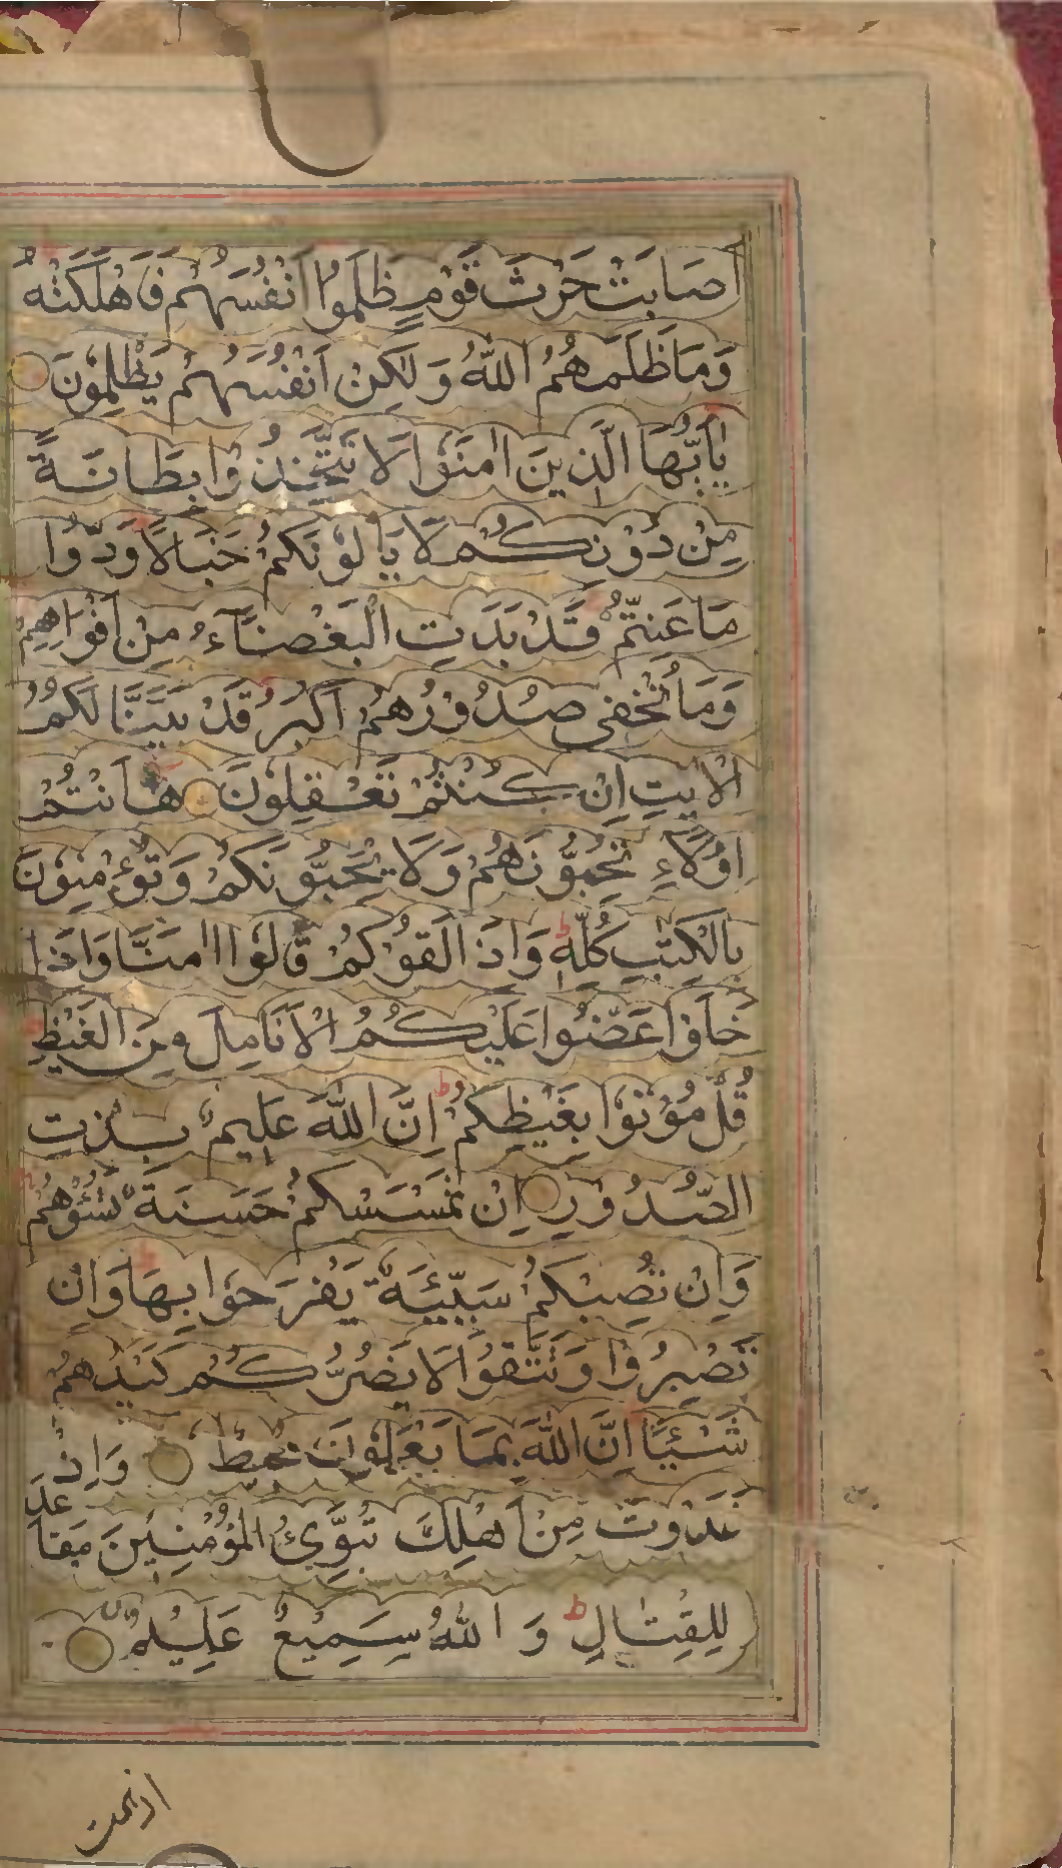 اَصَابَتْ حَرْثَ قَوْمٍ ظَلَمُوْا اَنْفُسَهُمْ فَاَهْلَكَتْهُ
وَمَا ظَلَمَهُمُ اللّٰهُ وَلٰكِنْ اَنْفُسَهُمْ يَظْلِمُوْنَ
يٰاَيُّهَا الَّذِيْنَ اٰمَنُوْا لَا تَتَّخِذُوْا بِطَانَةً
مِنْ دُوْنِكُمْ لَا يَاْلُوْنَكُمْ خَبَالًا وَدُّوْا
مَا عَنِتُّمْ قَدْ بَدَتِ الْبَغْضَآءُ مِنْ اَفْوَاهِهِمْ
وَمَا تُخْفِىْ صُدُوْرُهُمْ اَكْبَرُ قَدْ بَيَّنَّا لَكُمُ
الْاٰيٰتِ اِنْ كُنْتُمْ تَعْقِلُوْنَ هٰٓاَنْتُمْ
اُولَآءِ تُحِبُّوْنَهُمْ وَلَا يُحِبُّوْنَكُمْ وَتُؤْمِنُوْنَ
بِالْكِتٰبِ كُلِّهٖ ط وَاِذَا لَقُوْكُمْ قَالُوْا اٰمَنَّا وَاِذَا
خَلَوْا عَضُّوْا عَلَيْكُمُ الْاَنَامِلَ مِنَ الْغَيْظِ
قُلْ مُوْتُوْا بِغَيْظِكُمْ ط اِنَّ اللّٰهَ عَلِيْمٌ بِذَاتِ
الصُّدُوْرِ اِنْ تَمْسَسْكُمْ حَسَنَةٌ تَسُؤْهُمْ
وَاِنْ تُصِبْكُمْ سَيِّئَةٌ يَفْرَحُوْا بِهَا وَاِنْ
تَصْبِرُوْا وَتَتَّقُوْا لَا يَضُرُّكُمْ كَيْدُهُمْ
شَيْئًا اِنَّ اللّٰهَ بِمَا يَعْمَلُوْنَ مُحِيْطٌ وَاِذْ
غَدَوْتَ مِنْ اَهْلِكَ تُبَوِّئُ الْمُؤْمِنِيْنَ مَقَاعِدَ
لِلْقِتَالِ ط وَاللّٰهُ سَمِيْعٌ عَلِيْمٌ
اذهمت